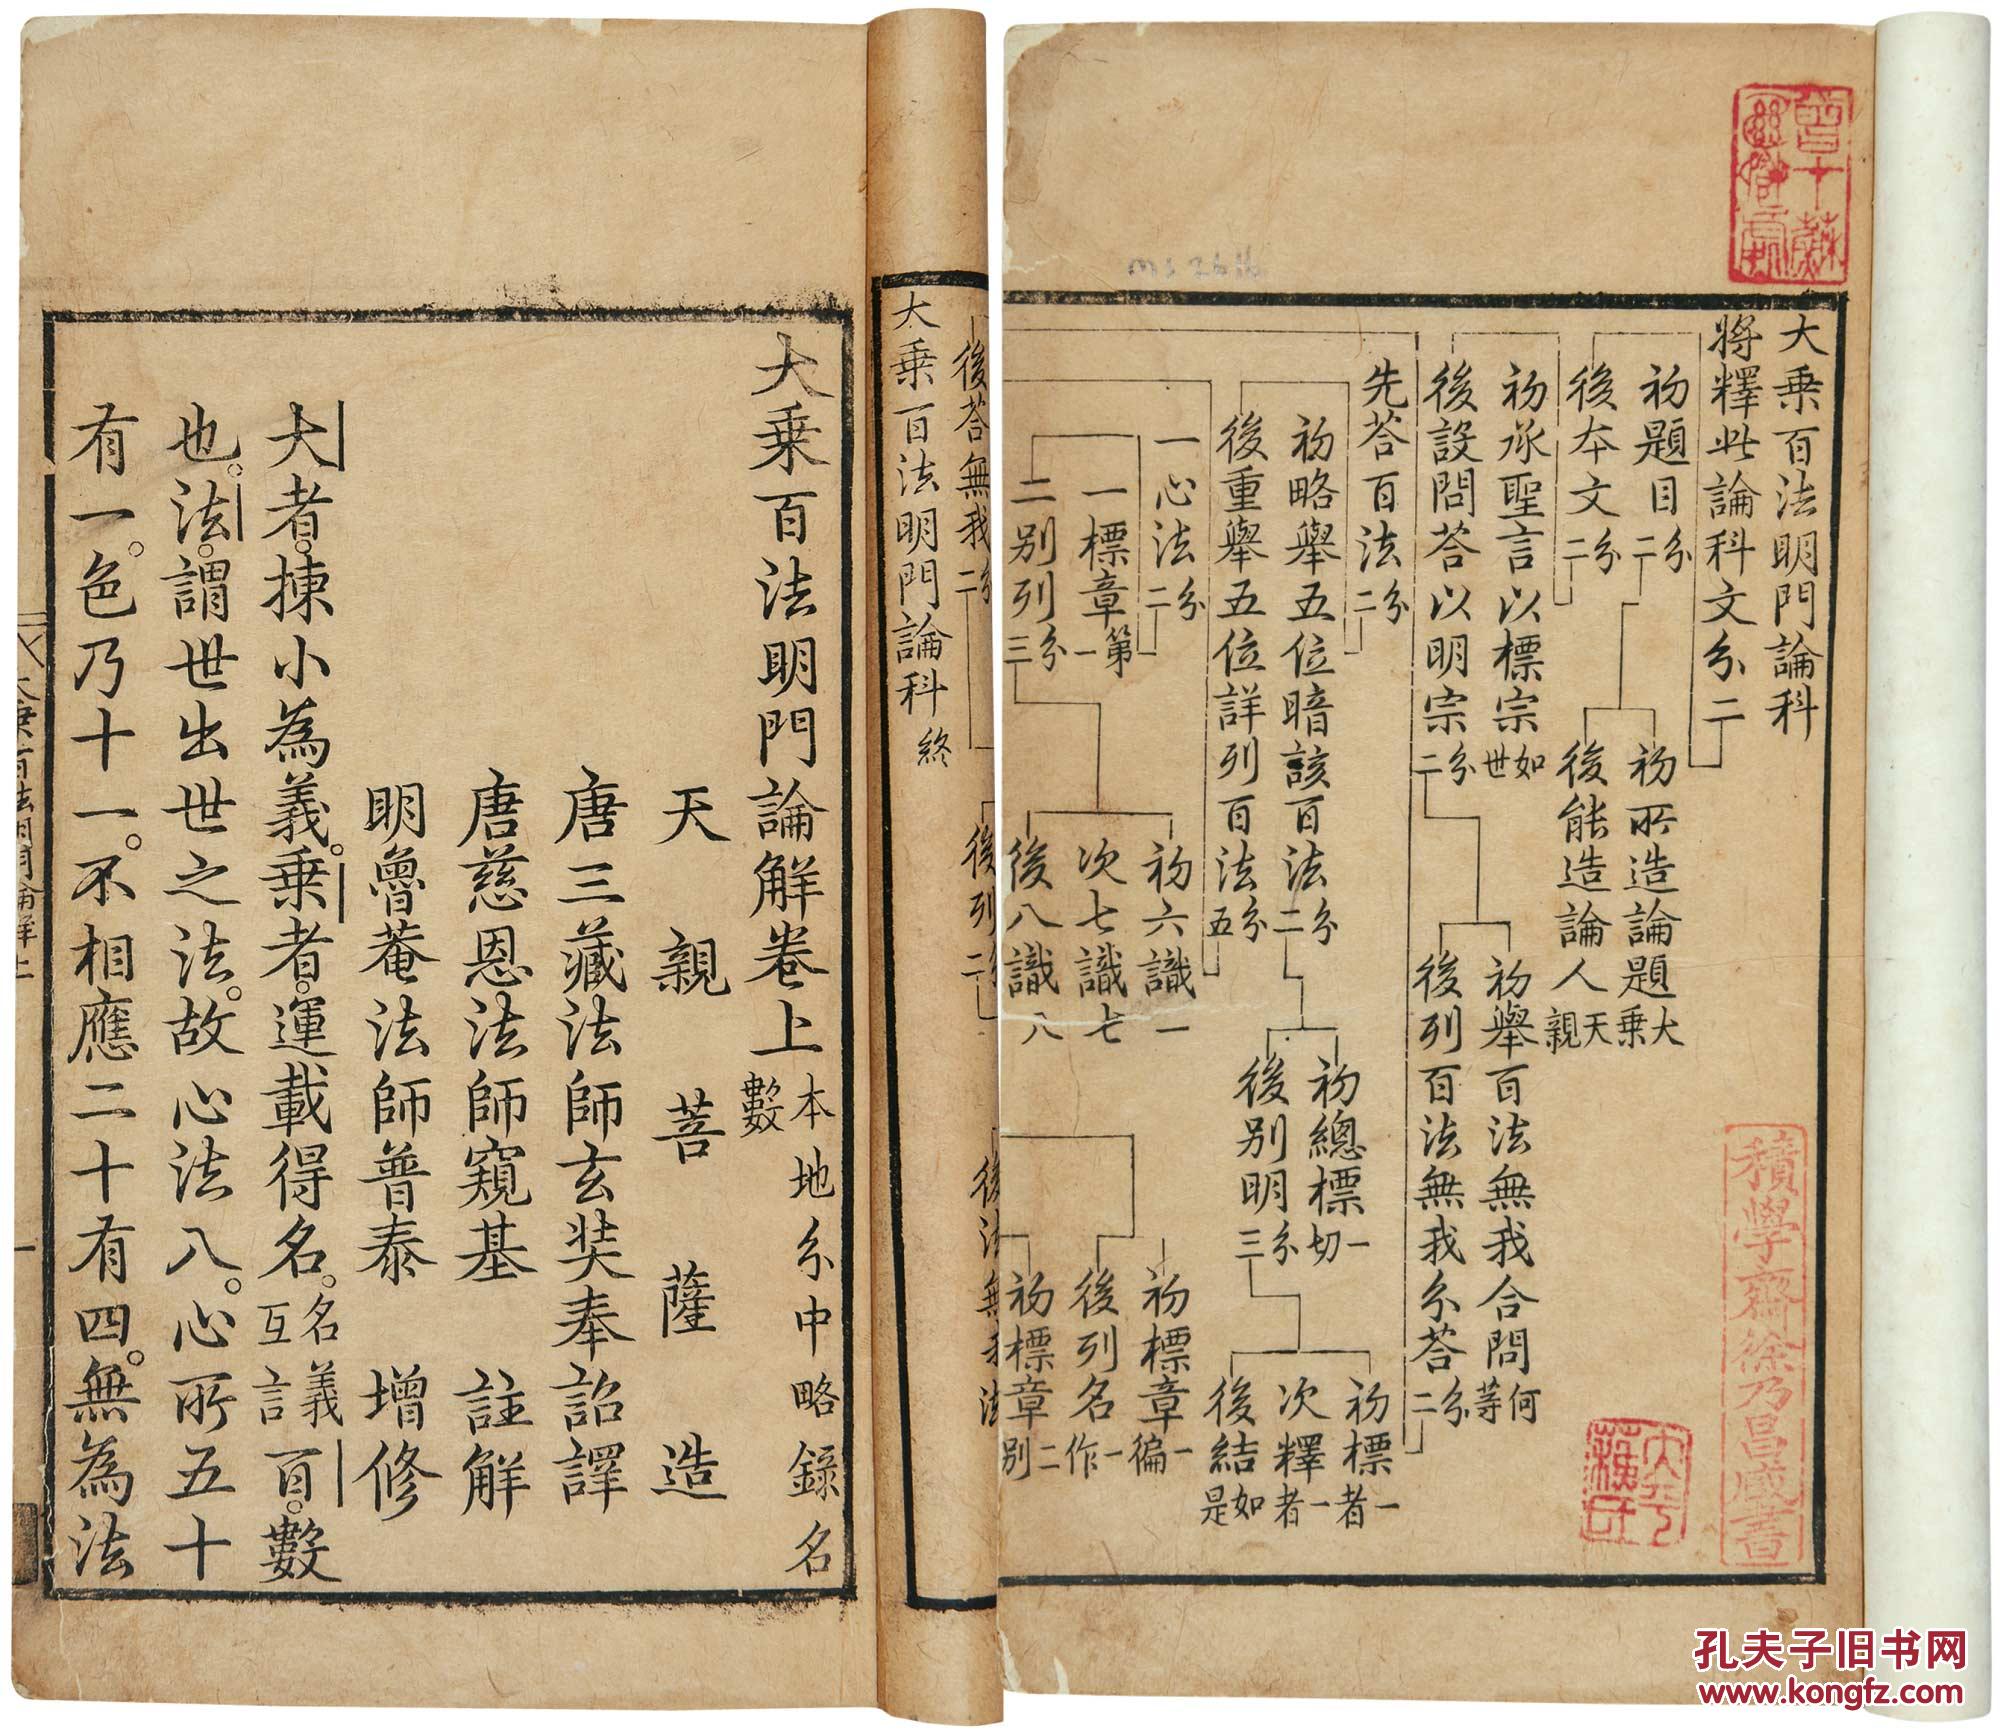 大乗百法明門論科
將釋此論科文分二
初題目分二
後本文分二
初所造論題大乗
後能造論人天親
初承聖言以標宗如世
後設問答以明宗分二
初舉百法無我合問何等
後列百法無我分荅分二
先荅百法分二
初略舉五位暗該百法分二
後重舉五位詳列百法分五
初總標一切
後别明分三
初標一者
次釋一者
後結如是
一心法分二
一標章第一
二别列分三
初六識一
次七識七
後八識八
初標章一徧
後列名一作
初標章二别
後荅無我分二
後列分二
後法無我法
大乗百法明門論科終
大乗百法明門論解卷上本地分中略錄名數
天親菩薩造
唐三藏法師玄奘奉詔譯
唐慈恩法師窺基註解
明魯菴法師普泰增修
大者。揀小為義。乗者。運載得名。名義互言百。數
也。法。謂世出世之法。故心法八。心所五十
有一。色乃十一。不相應二十有四。無為法
大乗百法明門論解上 一
積學齋徐乃昌藏書
孔夫子旧书网
www.kongfz.com